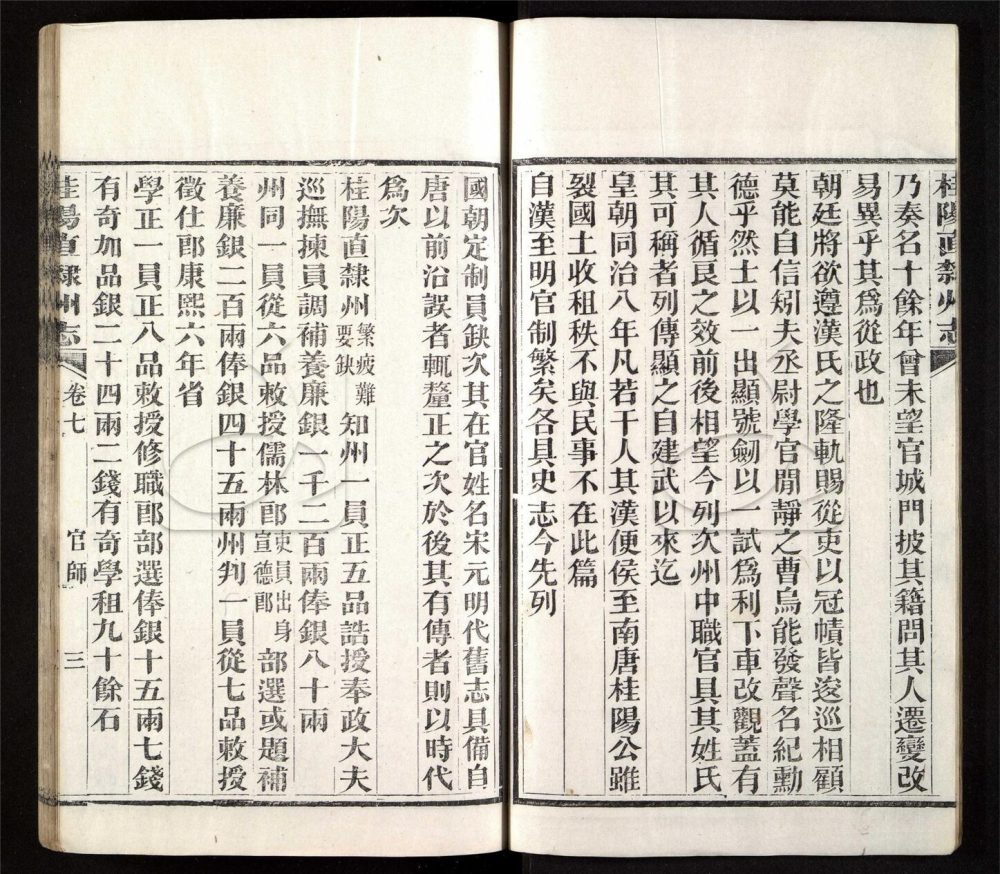 桂陽直隸州志
乃奏名十餘年曾未望官城門披其籍問其人遷變改
易異乎其爲從政也
朝廷將欲遵漢氏之隆軌賜從吏以冠幘皆逡巡相顧
莫能自信矧夫丞尉學官閒靜之曹烏能發聲名紀勳
德乎然士以一出顯號劒以一試爲利下車改觀蓋有
其人循良之效前後相望今列次州中職官具其姓氏
其可稱者列傳顯之自建武以來迄
皇朝同治八年凡若干人其漢便侯至南唐桂陽公雖
裂國土收租秩不與民事不在此篇
自漢至明官制繁矣各具史志今先列
國朝定制員缺次其在官姓名宋元明代舊志具備自
唐以前沿誤者輒釐正之次於後其有傳者則以時代
爲次
桂陽直隸州繁疲難要缺知州一員正五品誥授奉政大夫
巡撫揀員調補養廉銀一千二百兩俸銀八十兩
州同一員從六品敕授儒林郎吏員出身宣德郎部選或題補
養廉銀二百兩俸銀四十五兩州判一員從七品敕授
徵仕郎康熙六年省
學正一員正八品敕授修職郎部選俸銀十五兩七錢
有奇加品銀二十四兩二錢有奇學租九十餘石
桂陽直隸州志 卷七 官師 三